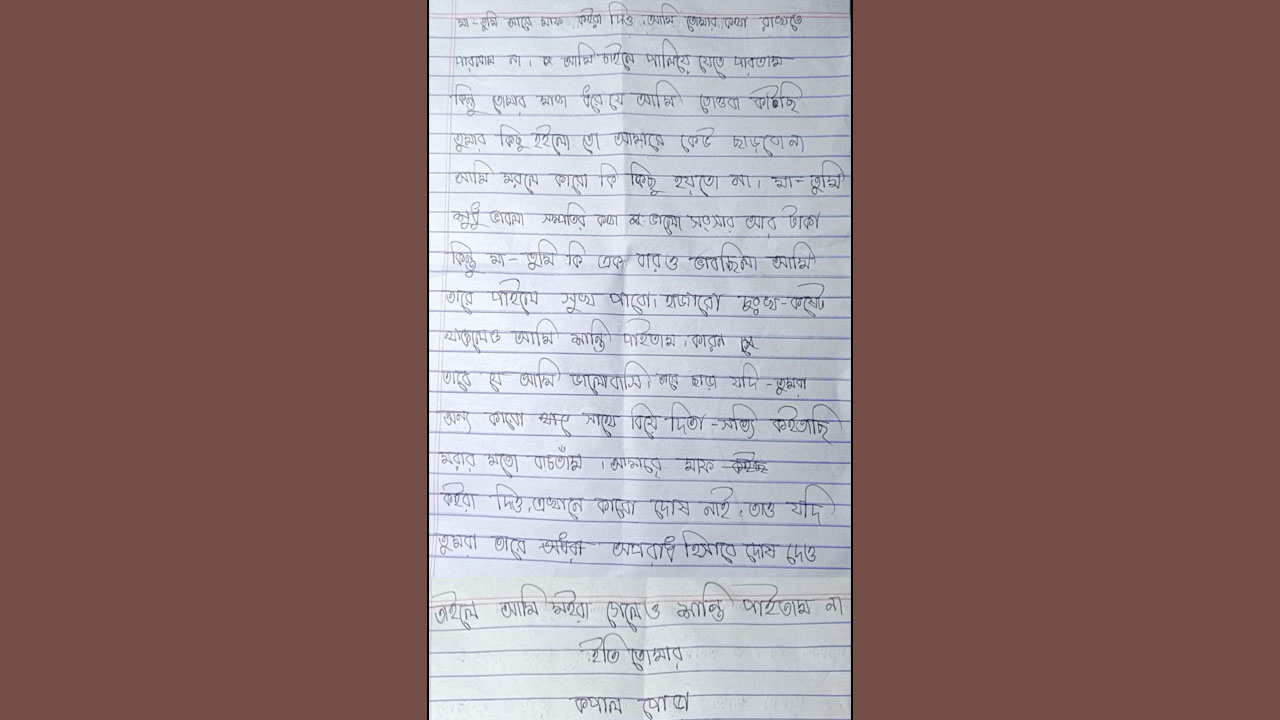 মা-তুমি আমারে মাফ কইরা দিও, আমি তোমার কথা রাখতে
পারলাম না। আমি চাইলে পালিয়ে যেতে পারতাম
কিন্তু তোমার মাথা ধরে যে আমি তোওবা কাটছি
তুমার কিছু হইলো তো আমারে কেউ ছাড়তো না
আমি মরলে কারো কি কিছু হয়তো না। মা-তুমি
শুধু ভাবলা সম্পত্তির কথা ভালো সংসার আর টাকা
কিন্তু মা-তুমি কি এক বারও ভাবছিলা আমি
তারে পাইলে সুখ পাবো। হাজারো দুঃখ-কষ্টে
থাকলেও আমি শান্তি পাইতাম, কারন
তারে যে আমি ভালোবাসি। তারে ছাড়া যদি-তুমরা
অন্য কারো সাথে বিয়ে দিতা-সত্যি কইতাছি
মরার মতো বাচতাঁম। আমারে মাফ
কইরা দিও, এখানে কারো দোষ নাই, তাও যদি
তুমরা তারে অপরাধি হিসাবে দোষ দেও
তাইলে আমি মইরা গেলেও শান্তি পাইতাম না
ইতি তোমার
কপাল পোড়া